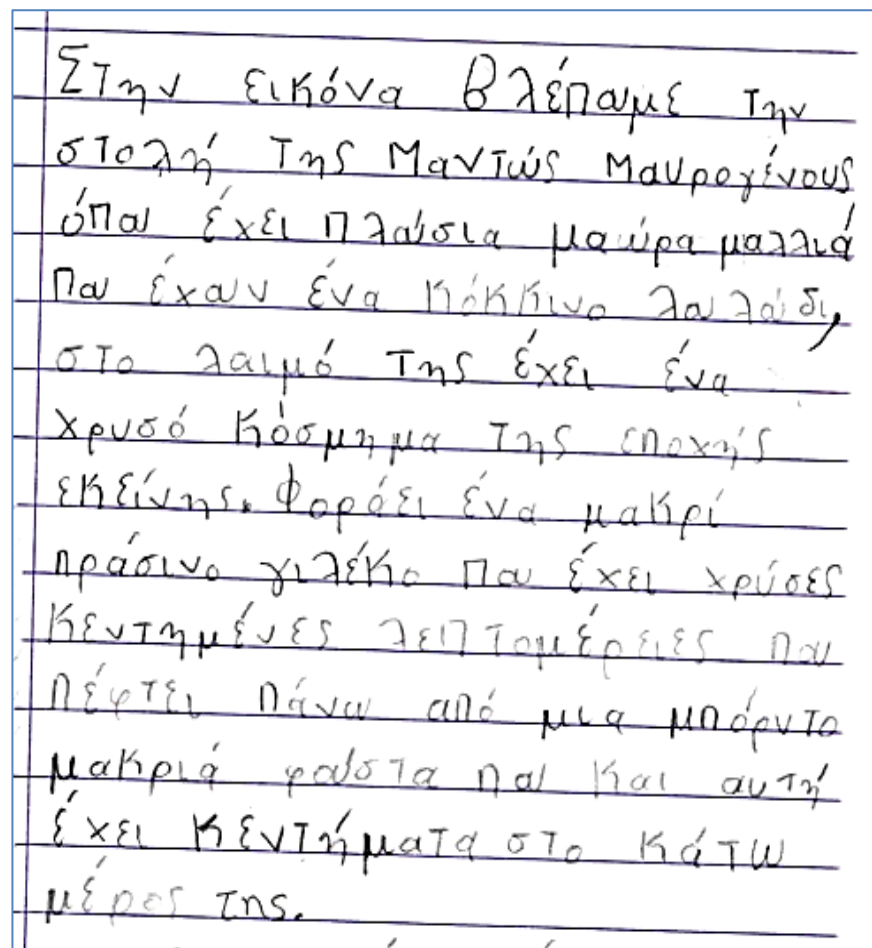 Στην εικόνα βλέπουμε την
στολή της Μαντώς Μαυρογένους
όπου έχει πλούσια μαύρα μαλλιά
που έχουν ένα κόκκινο λουλούδι,
στο λαιμό της έχει ένα
χρυσό κόσμημα της εποχής
εκείνης. Φοράει ένα μακρί
πράσινο γιλέκο που έχει χρύσες
κεντημένες λεπτομέρειες που
πέφτει πάνω από μια μπόρντο
μακριά φούστα που και αυτή
έχει κεντήματα στο κάτω
μέρος της.